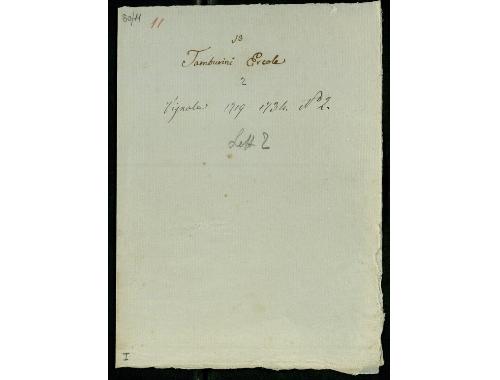 80/11
11
53
Tamburini Ercole
2
Vignola 1719 1734. N° 2.
Lett 2
I